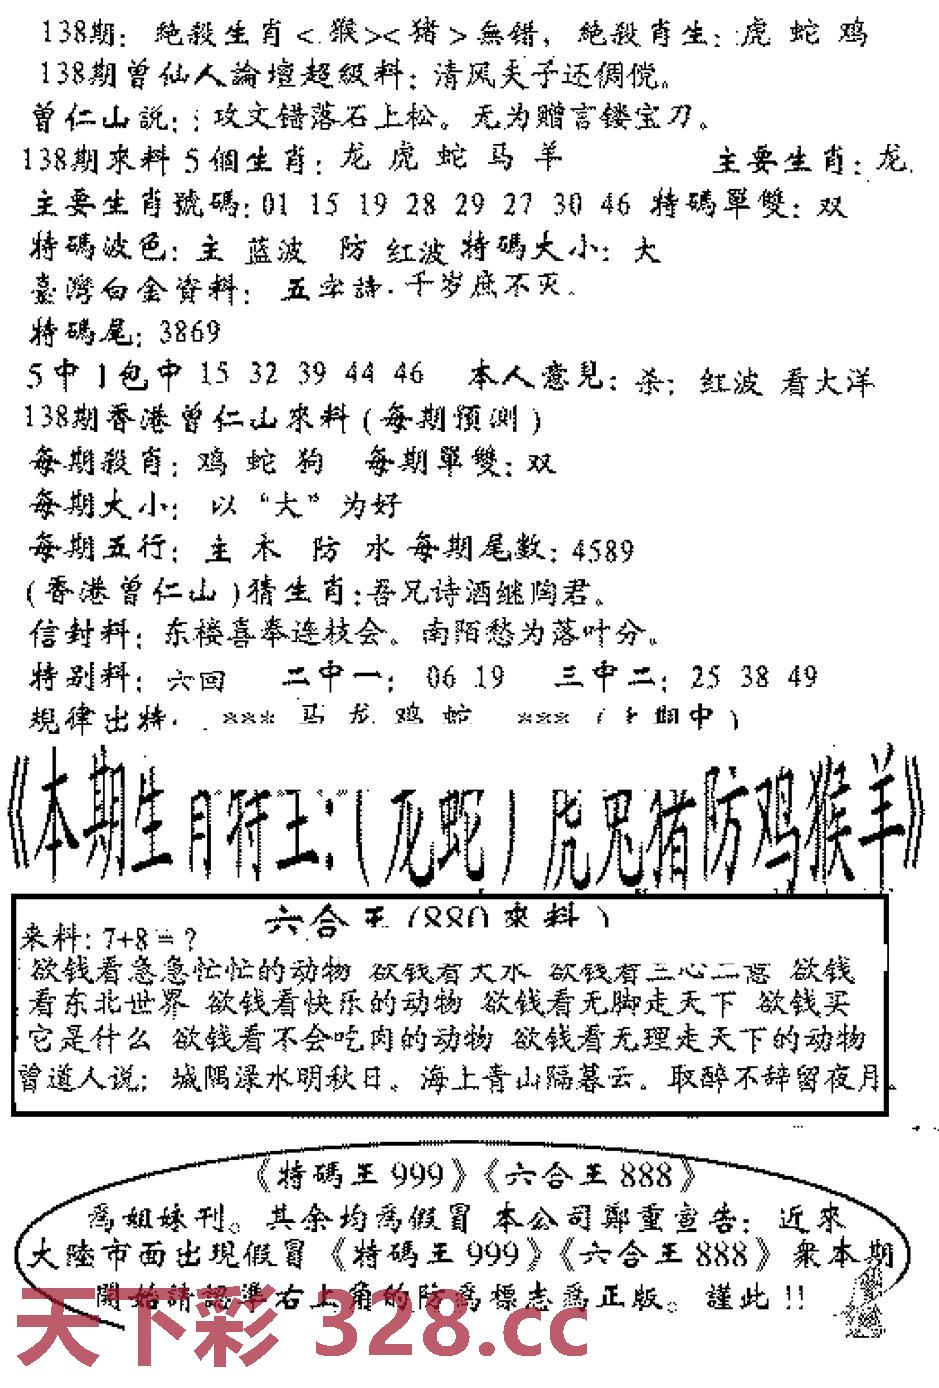 138期：絶殺生肖<猴><猪>無错，絶殺肖生：虎 蛇 鸡
138期曾仙人論壇超級料：清风天子还倜傥。
曾仁山説：；攻文错落石上松。无为赠言镂宝刀。
138期來料 5個生肖：龙 虎 蛇 马 羊 主要生肖：龙.
主要生肖號碼：01 15 19 28 29 27 30 46 特碼單雙：双
特碼波色：主 蓝波 防 红波 特碼大小：大
臺灣白金資料： 五字詩．千岁庶不灭。
特碼尾：3869
5中1包中 15 32 39 44 46 本人意見：杀；红波 看大洋
138期香港曾仁山來料(每期預測)
每期殺肖：鸡 蛇 狗 每期單雙：双
每期大小： 以“大”为好
每期五行：主 木 防 水 每期尾数：4589
(香港曾仁山)猜生肖：吾兄诗酒继陶君。
信封料：东楼喜奉连枝会。南陌愁为落叶分。
特别料：六回 二中一： 06 19 三中二：25 38 49
規律出特． *** 马 龙 鸡 蛇 *** (上期中)
《本期生肖特王：(龙蛇)虎兔猪防鸡猴羊》
六合王(880來料)
来料：7+8=?
欲钱看急急忙忙的动物 欲钱看大水 欲钱看三心二意 欲钱
看东北世界 欲钱看快乐的动物 欲钱看无脚走天下 欲钱买
它是什么 欲钱看不会吃肉的动物 欲钱看无理走天下的动物
曾道人说：城隅渌水明秋日。海上青山隔暮云。取醉不辞留夜月.
《特碼王999》《六合王888》
爲姐妹刊。其余均爲假冒 本公司鄭重宣告：近來
大陸市面出現假冒《特碼王999》《六合王888》衆本期
開始請認準右上角的防爲標志爲正版。謹此!!
天下彩 328.cc